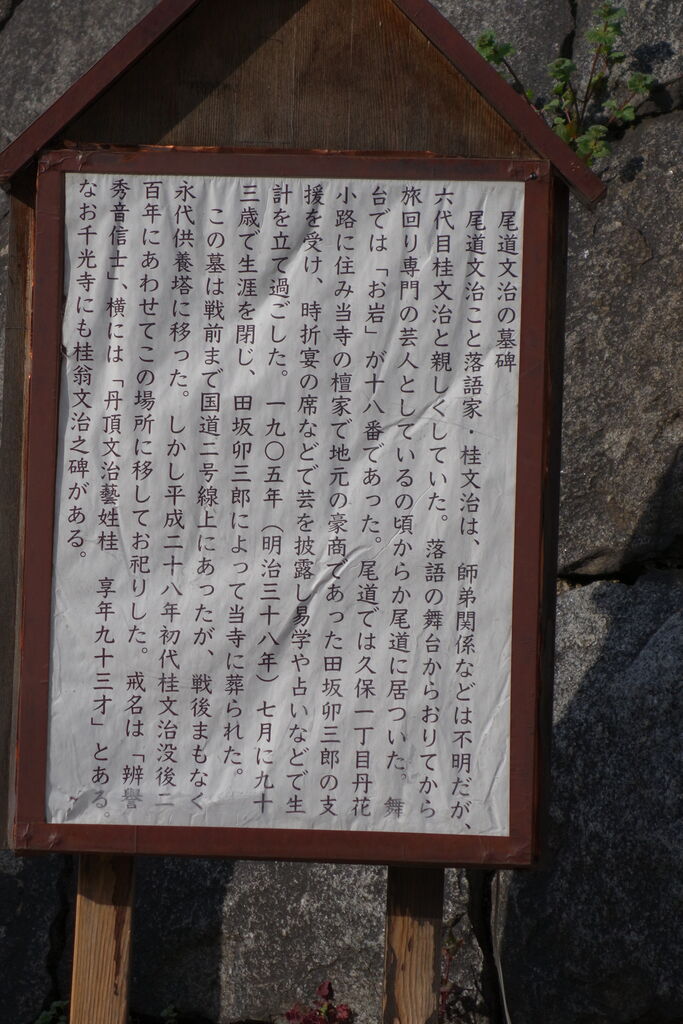 尾道文治の墓碑
尾道文治こと落語家・桂文治は、師弟関係などは不明だが、
六代目桂文治と親しくしていた。落語の舞台からおりてから
旅回り専門の芸人としているの頃からか尾道に居ついた。舞
台では「お岩」が十八番であった。尾道では久保一丁目丹花
小路に住み当寺の檀家で地元の豪商であった田坂卯三郎の支
援を受け、時折宴の席などで芸を披露し易学や占いなどで生
計を立て過ごした。一九〇五年（明治三十八年）七月に九十
三歳で生涯を閉じ、田坂卯三郎によって当寺に葬られた。
この墓は戦前まで国道二号線上にあったが、戦後まもなく
永代供養塔に移った。しかし平成二十八年初代桂文治没後二
百年にあわせてこの場所に移してお祀りした。戒名は「辨譽
秀音信士」、横には「丹頂文治藝姓桂　享年九十三才」とある。
なお千光寺にも桂翁文治之碑がある。